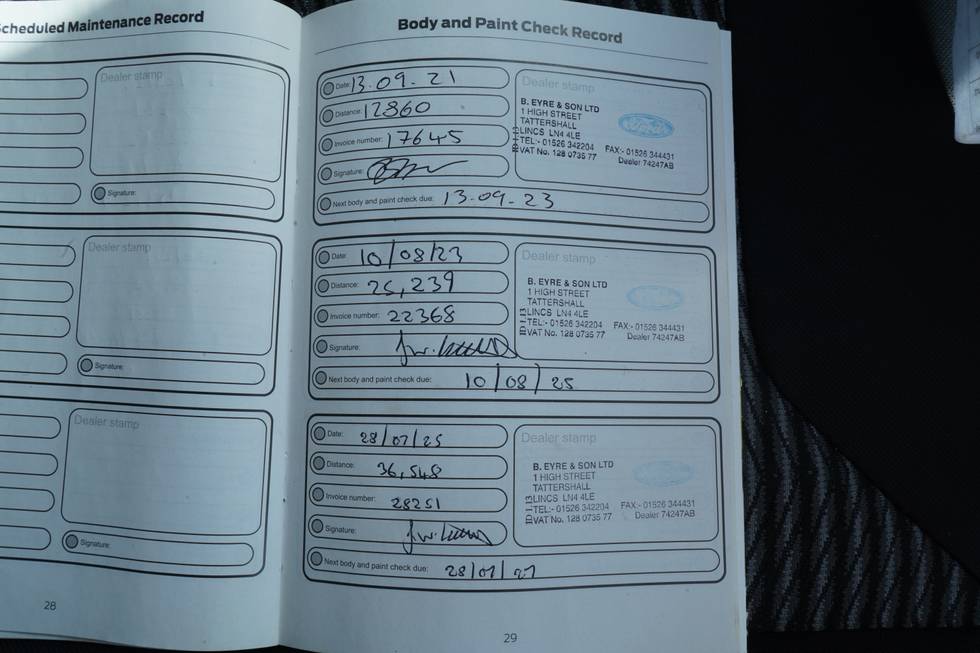 Scheduled Maintenance Record
Dealer stamp
Signature:
Dealer stamp
Signature:
Dealer stamp
Signature:
28
Body and Paint Check Record
Date: 13.09.21
Distance: 12860
Invoice number: 17645
Signature:
Next body and paint check due: 13.09.23
Dealer stamp
B. EYRE & SON LTD
1 HIGH STREET
TATTERSHALL
LINCS LN4 4LE
TEL:- 01526 342204 FAX:- 01526 344431
VAT No. 128 0735 77 Dealer 74247AB
ID-1-13
Date: 10/08/23
Distance: 25,239
Invoice number: 22368
Signature:
Next body and paint check due: 10/08/25
Dealer stamp
B. EYRE & SON LTD
1 HIGH STREET
TATTERSHALL
LINCS LN4 4LE
TEL:- 01526 342204 FAX:- 01526 344431
VAT No. 128 0735 77 Dealer 74247AB
ID-1-13
Date: 28/07/25
Distance: 36,548
Invoice number: 28251
Signature:
Next body and paint check due: 28/07/27
Dealer stamp
B. EYRE & SON LTD
1 HIGH STREET
TATTERSHALL
LINCS LN4 4LE
TEL:- 01526 342204 FAX:- 01526 344431
VAT No. 128 0735 77 Dealer 74247AB
ID-1-13
29